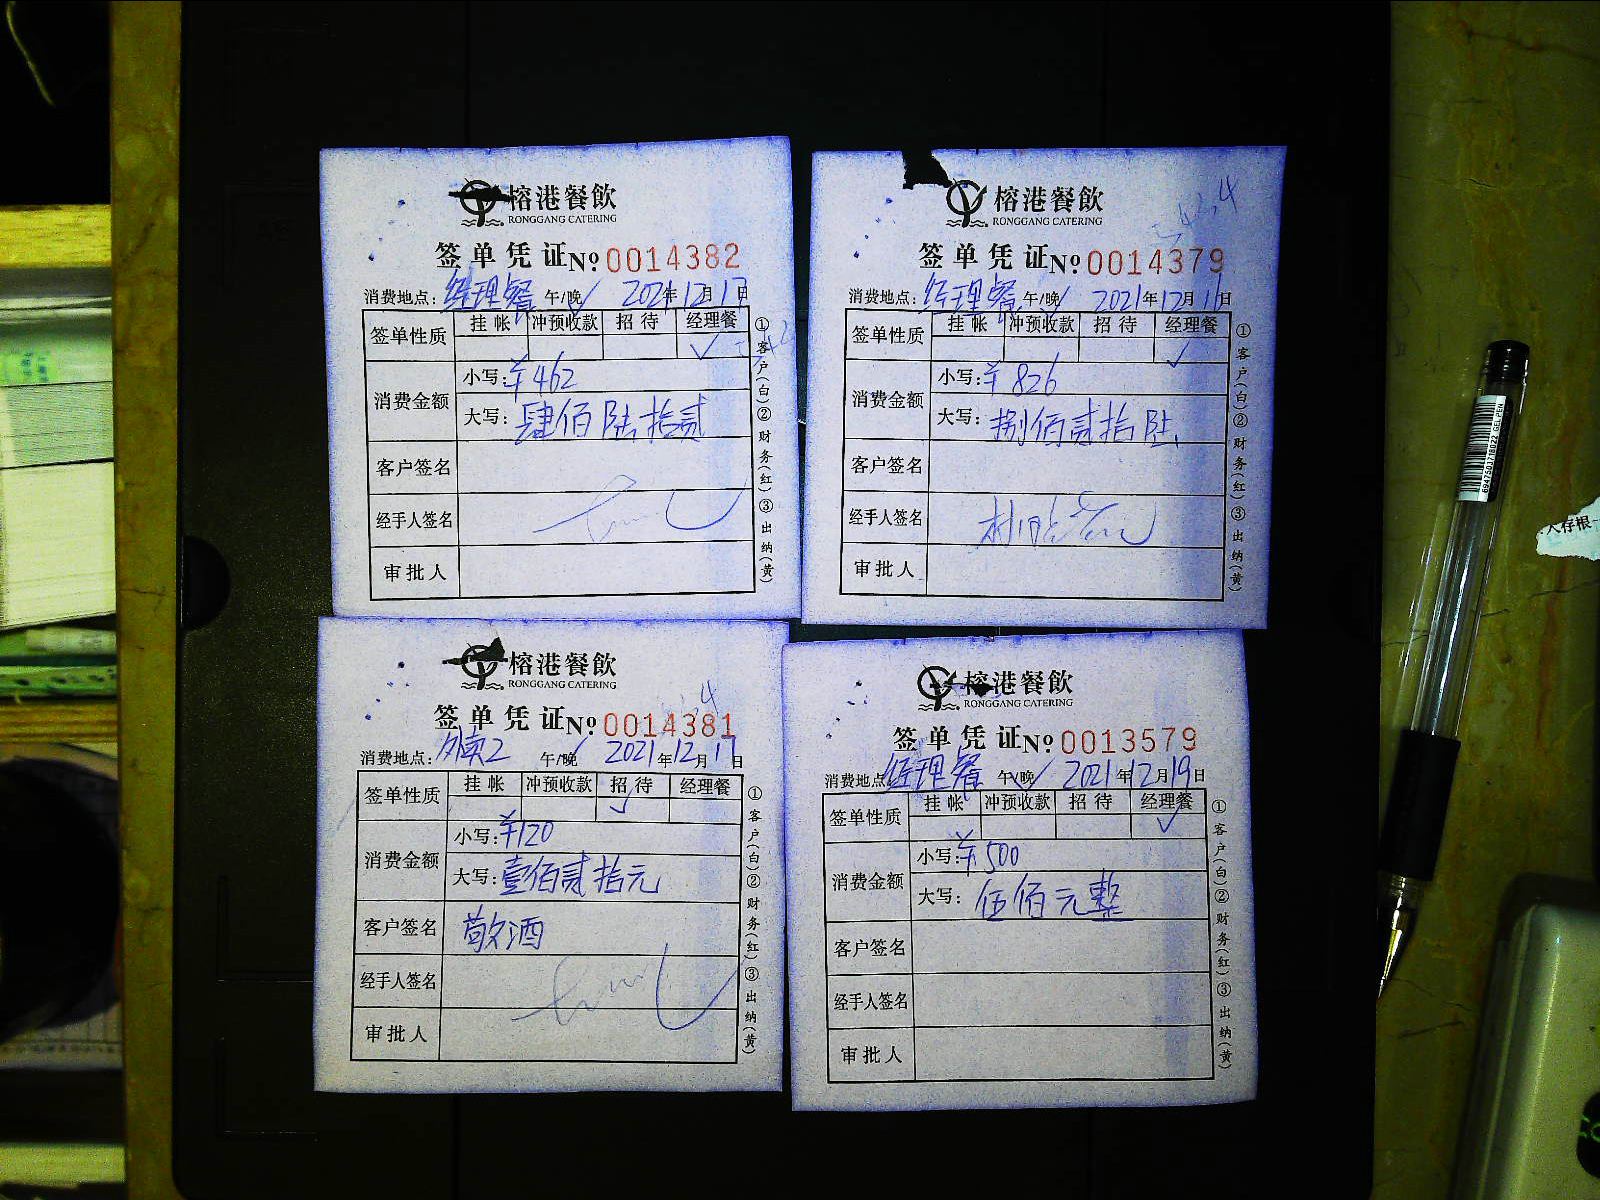 榕港餐飲
RONGGANG CATERING
签单凭证№0014382
消费地点：经理餐 午/晚 2021年12月17日
签单性质 挂帐 冲预收款 招待 经理餐
✓
消费金额 小写：￥462
大写：肆佰陆拾贰
客户签名
经手人签名
审批人
①客户(白)②财务(红)③出纳(黄)
榕港餐飲
RONGGANG CATERING
签单凭证№0014379
消费地点：经理餐 午/晚 2021年12月11日
签单性质 挂帐 冲预收款 招待 经理餐
✓
消费金额 小写：￥826
大写：捌佰贰拾陆
客户签名
经手人签名
审批人
①客户(白)②财务(红)③出纳(黄)
榕港餐飲
RONGGANG CATERING
签单凭证№0014381
消费地点：外卖2 午/晚 2021年12月11日
签单性质 挂帐 冲预收款 招待 经理餐
✓
消费金额 小写：￥120
大写：壹佰贰拾元
客户签名 敬酒
经手人签名
审批人
①客户(白)②财务(红)③出纳(黄)
榕港餐飲
RONGGANG CATERING
签单凭证№0013579
消费地点：经理餐 午/晚 2021年12月19日
签单性质 挂帐 冲预收款 招待 经理餐
✓
消费金额 小写：￥500
大写：伍佰元整
客户签名
经手人签名
审批人
①客户(白)②财务(红)③出纳(黄)
人存根